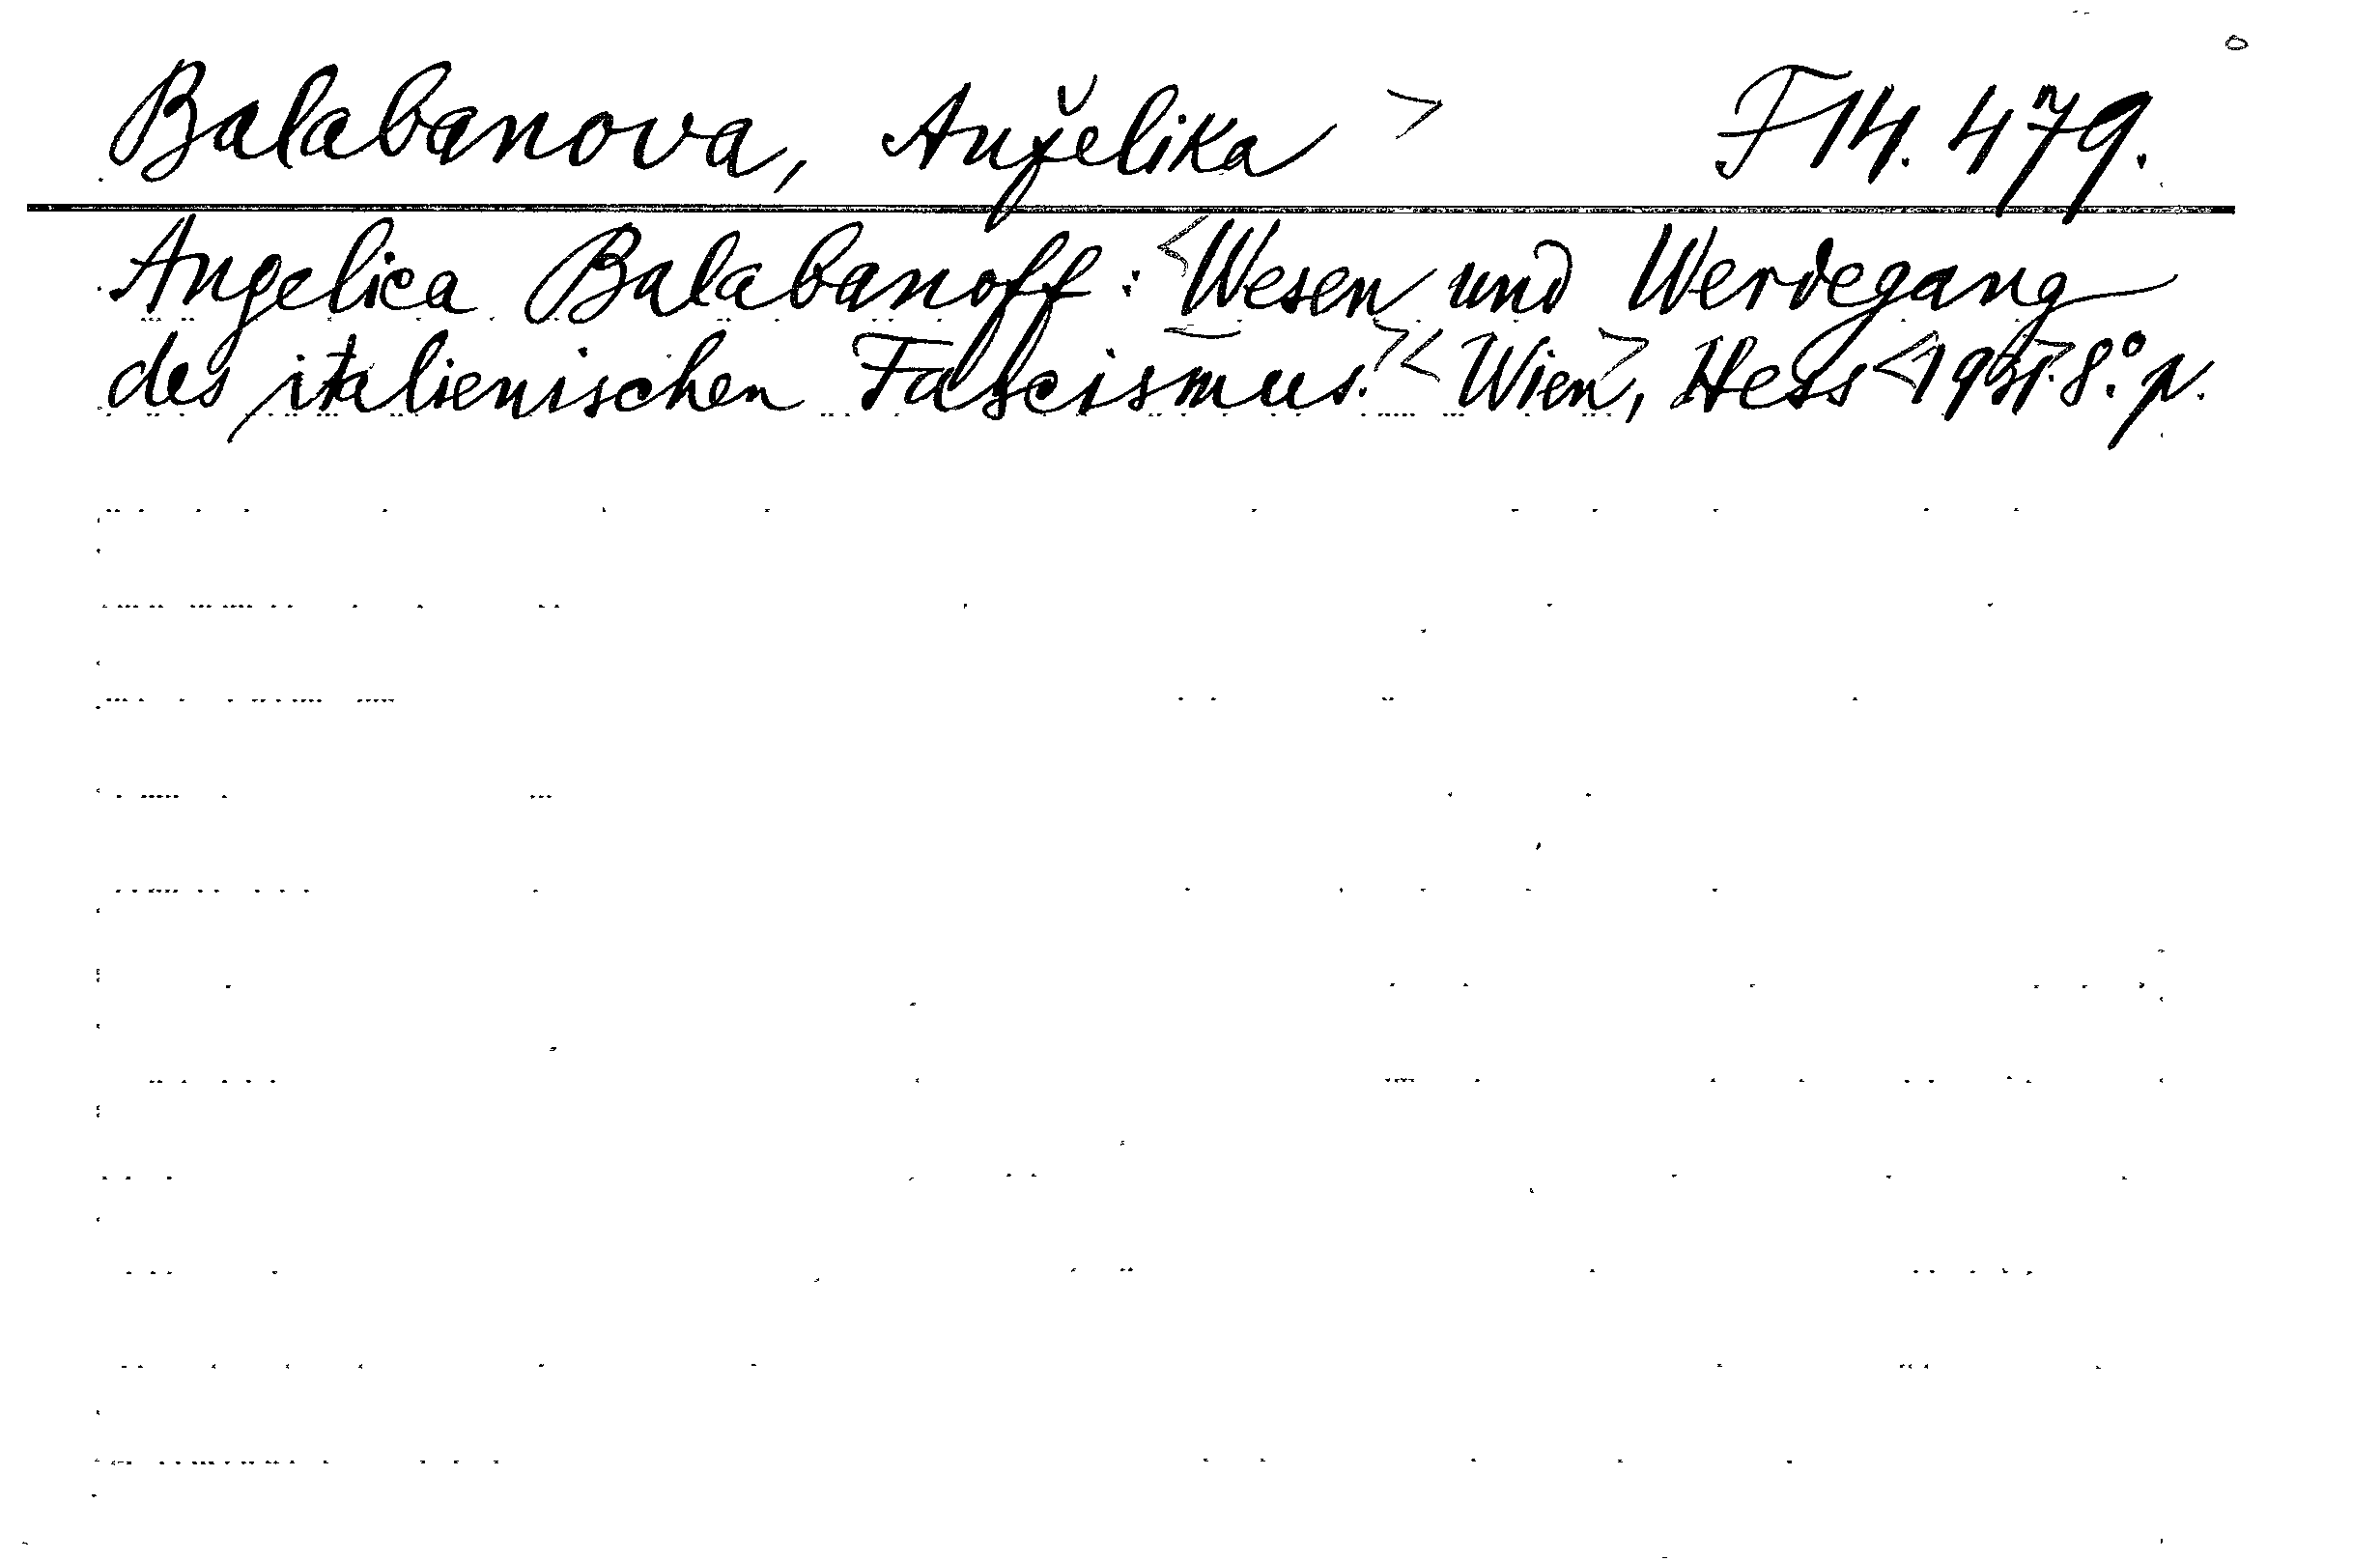 Balabanova, Anželika > F 14.479.
Angelica Balabanoff: <Wesen und Werdegang
des italienischen Fascismus.> <Wien>, Hess <1931. 8.° p.